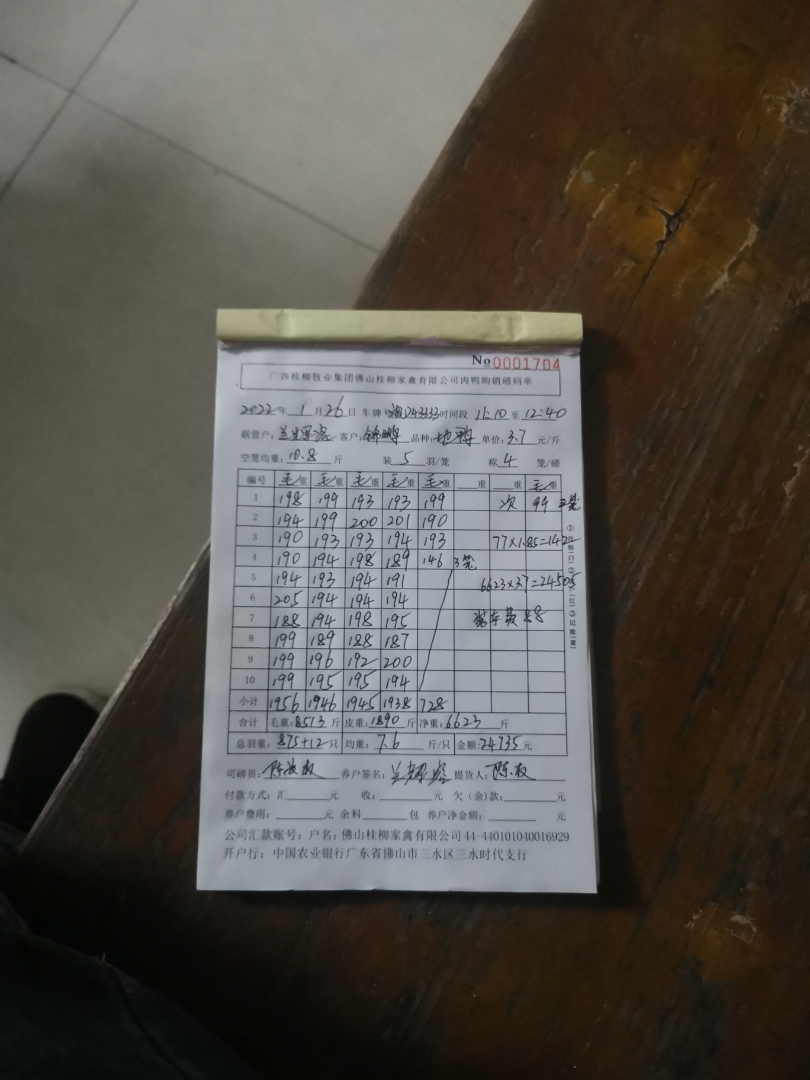 No 0001704
广西桂柳牧业集团佛山桂柳家禽有限公司肉鸭购销磅码单
2022年 1月26日 车牌号 时间段 11:10 至 12:40
联营户: 客户:锦鹏 品种: 鸭 单价:3.7 元/斤
空笼均重:10.8 斤 装 5 羽/笼 称 4 笼/磅
编号 毛/重 毛/重 毛/重 毛/重 毛/重 重 重 毛/重
1 198 199 193 193 199 次 99 笼
2 194 199 200 201 190
3 190 193 193 194 193 77×1.85=142
4 190 194 198 189 146 3笼
5 194 193 194 191 6623×3.7=24505
6 205 194 194 194
7 188 194 198 195 装车费88
8 199 189 188 187
9 199 196 192 200
10 199 195 195 194
小计 1956 1946 1945 1938 728
合计 毛重:8513 斤 皮重:1890 斤 净重:6623 斤
总羽重:875+12 只 均重:7.6 斤/只 金额:24735元
司磅员: 养户签名: 提货人:
付款方式:汇 元 收: 元 欠(余)款: 元
养户费用: 元 余料 包 养户净金额: 元
公司汇款账号:户名:佛山桂柳家禽有限公司44-440101040016929
开户行:中国农业银行广东省佛山市三水区三水时代支行